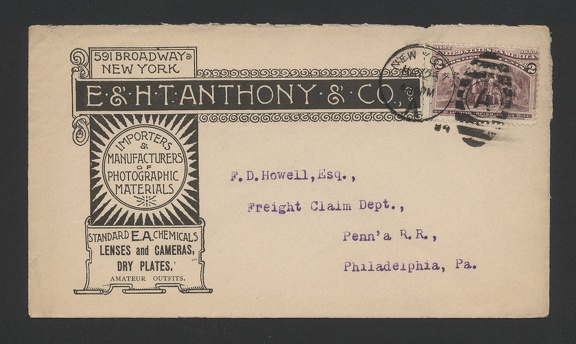 591 BROADWAY
NEW YORK
E. & H. T. ANTHONY & CO.,
IMPORTERS
&
MANUFACTURERS
OF
PHOTOGRAPHIC
MATERIALS
STANDARD E.A. CHEMICALS
LENSES and CAMERAS,
DRY PLATES.
AMATEUR OUTFITS.
NEW Y
PM
94
2
F.D.Howell,Esq.,
Freight Claim Dept.,
Penn'a R.R.,
Philadelphia, Pa.